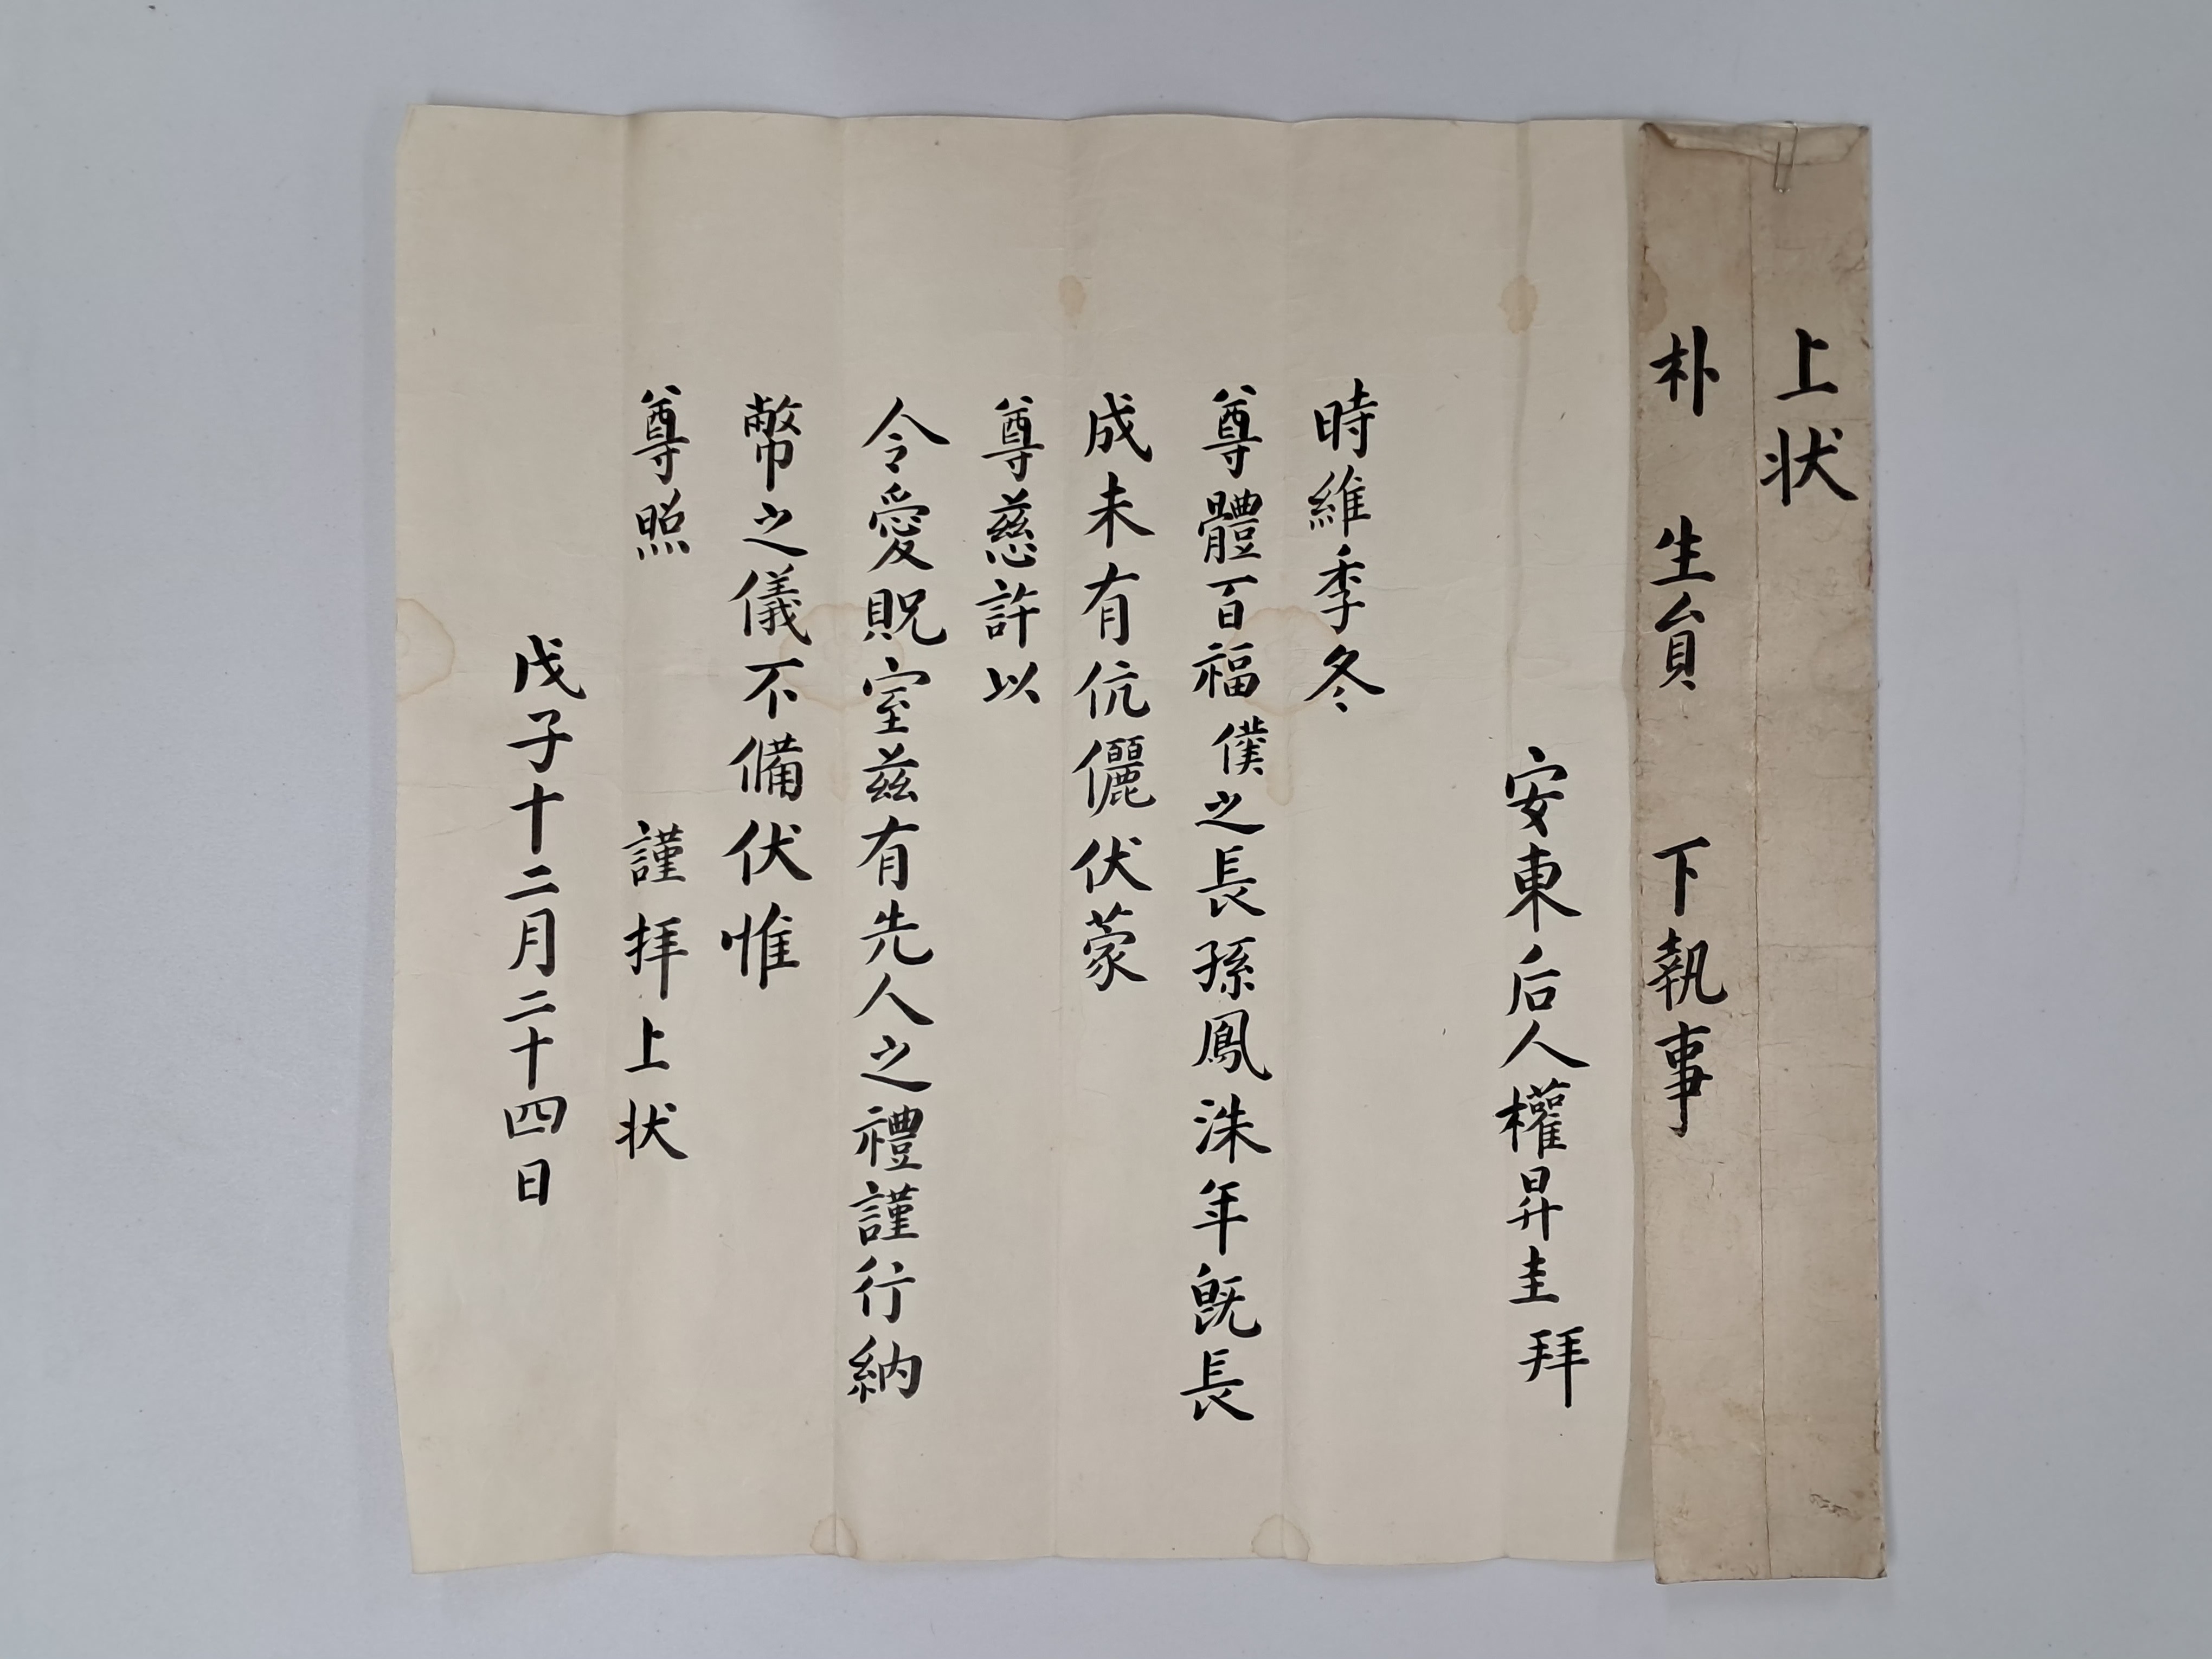 上状
朴 生員 下執事
安東后人權昇圭 拜
時維季冬
尊體百福僕之長孫鳳洙年旣長
成未有伉儷伏蒙
尊慈許以
令愛貺室茲有先人之禮謹行納
幣之儀不備伏惟
尊照 謹拜上状
戊子十二月二十四日